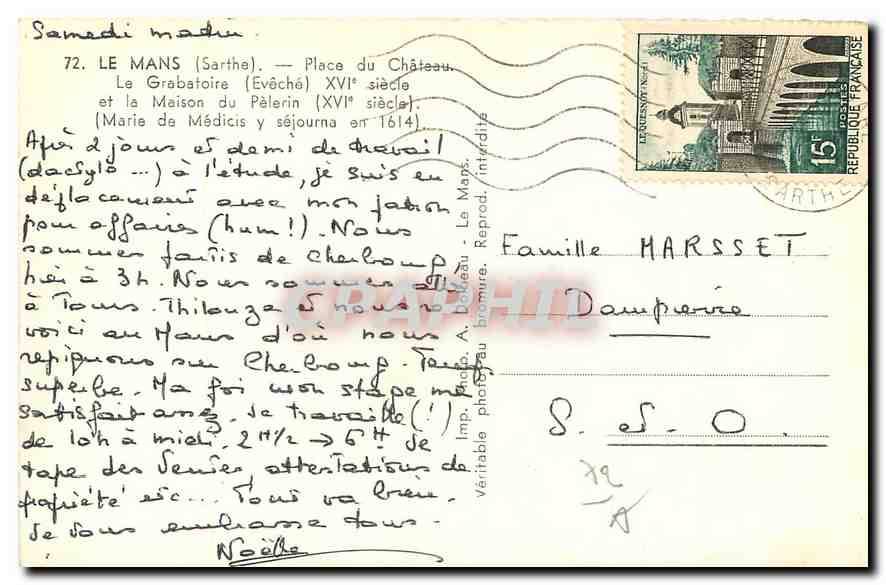 Samedi matin.
72. LE MANS (Sarthe). — Place du Château.
Le Grabatoire (Evêché) XVIe siècle
et la Maison du Pèlerin (XVIe siècle).
(Marie de Médicis y séjourna en 1614)
Après 2 jours et demi de travail
(dactylo ...) à l'étude, je suis en
déplacement avec mon patron
pour affaires (hum!). Nous
sommes partis de Cherbourg
hier à 3h. Nous sommes allés
à Tours. Thilouze et nous re
voici au Mans d'où nous
repiquons sur Cherbourg. Temps
superbe. Ma foi mon stage me
satisfait assez. Je travaille (!)
de 10h à midi. 2H1/2 → 6H Je
tape des ventes, attestations de
propriété etc... Tout va bien.
Je vous embrasse tous.
Noëlle
Imp. Photo. A. Dolbeau - Le Mans.
Véritable photo au bromure. Reprod. interdite
LE QUESNOY (Nord)
15F
POSTES
REPUBLIQUE FRANÇAISE
SARTHE
Famille MARSSET
Dampierre
S. et O.
72
A
CPAPHIL